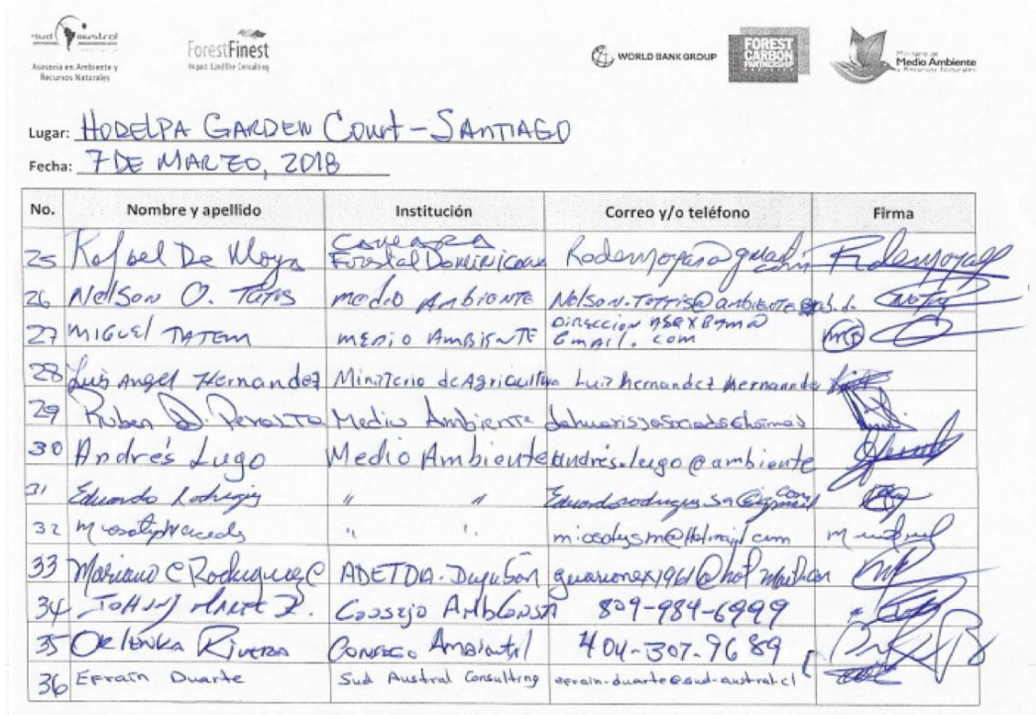 sud austral
Asesoría en Ambiente y
Recursos Naturales
ForestFinest
Impact. Land Use Consulting
WORLD BANK GROUP
FOREST
CARBON
PARTNERSHIP
Ministerio de
Medio Ambiente
y Recursos Naturales
Lugar: HODELPA GARDEN Court - SANTIAGO
Fecha: 7 DE MARZO, 2018
No. Nombre y apellido Institución Correo y/o teléfono Firma
25 Rafael De Moya Camara Forestal Dominicana
26 Nelson O. medio Ambiente
27 MIGUEL TATEM medio AmBiENTE Direccion Gmail.com
28 Luis Angel Hernandez Ministerio de Agricultura Luiz Hernandez
29 Ruben D. Medio Ambiente
30 Andrés Lugo Medio Ambiente andres.lugo@ambiente
31 Eduardo Rodriguez " "
32 " " miosotysm@Hotmail.com
33 Mariano C Rodriguez C ADETDA. guarionex1961@hotmail.com
34 Consejo 809-984-6999
35 ORLENKA RIVERA Consejo Ambiental 404-307-9689
36 Efraín Duarte Sud Austral Consulting efrain.duarte@sud-austral.cl